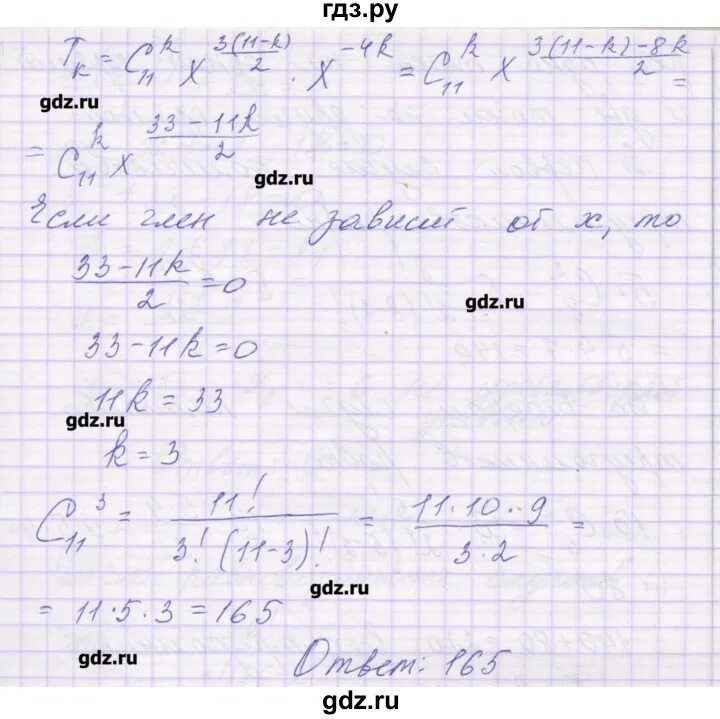 гдз.ру
T_k = C_11^k x^(3(11-k)/2) · x^(-4k) = C_11^k x^((3(11-k)-8k)/2) =
gdz.ru
= C_11^k x^((33-11k)/2)
gdz.ru
Если член не зависит от x, то
(33-11k)/2 = 0
gdz.ru
33-11k=0
11k = 33
gdz.ru
k = 3
C_11^3 = 11!/(3!(11-3)!) = (11·10·9)/(3·2) =
gdz.ru
= 11·5·3 = 165
gdz.ru
Ответ: 165
gdz.ru